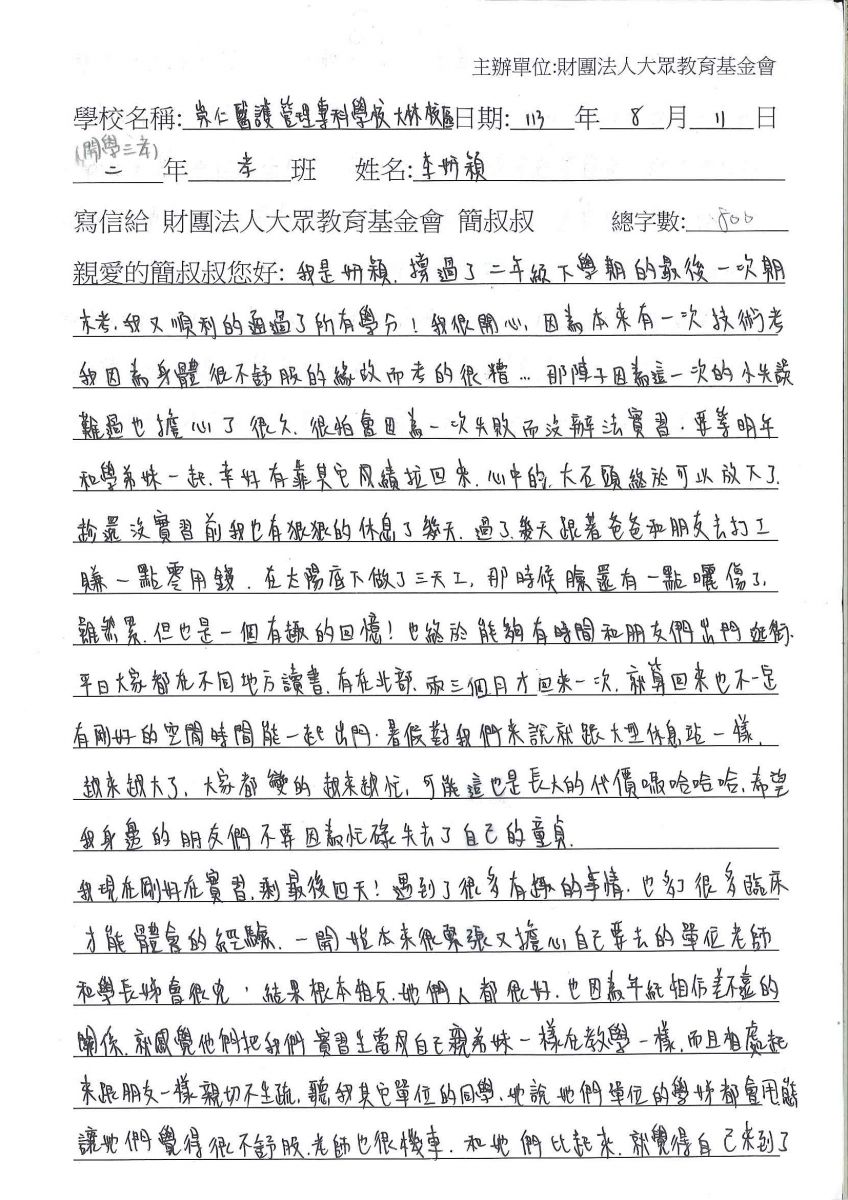 主辦單位:財團法人大眾教育基金會
學校名稱: 崇仁醫護管理專科學校大林校區 日期: 113 年 8 月 11 日
(開學三孝)
二 年 孝 班 姓名: 李妍穎
寫信給 財團法人大眾教育基金會 簡叔叔 總字數: 800
親愛的簡叔叔您好: 我是妍穎. 撐過了二年級下學期的最後一次期
末考, 我又順利的通過了所有學分! 我很開心, 因為本來有一次技術考
我因為身體很不舒服的緣故而考的很糟... 那陣子因為這一次的小失誤
難過也擔心了很久. 很怕會因為一次失敗而沒辦法實習. 要等明年
和學弟妹一起. 幸好有靠其它成績拉回來. 心中的大石頭終於可以放下了.
趁還沒實習前我也有狠狠的休息了幾天. 過了幾天跟著爸爸和朋友去打工
賺一點零用錢. 在太陽底下做了三天工, 那時候臉還有一點曬傷了,
雖然累. 但也是一個有趣的回憶! 也終於能夠有時間和朋友們出門逛街.
平日大家都在不同地方讀書. 有在北部. 兩三個月才回來一次. 就算回來也不一定
有剛好的空閒時間能一起出門. 暑假對我們來說就跟大型休息站一樣.
越來越大了, 大家都變的越來越忙, 可能這也是長大的代價嗎哈哈哈, 希望
我身邊的朋友們不要因為忙碌失去了自己的童貞.
我現在剛好在實習, 剩最後四天! 遇到了很多有趣的事情. 也多了很多臨床
才能體會的經驗. 一開始本來很緊張又擔心自己要去的單位老師
和學長姊會很兇, 結果根本相反. 她們人都很好. 也因為年紀相信差不遠的
關係, 就感覺他們把我們實習生當成自己親弟妹一樣在教學一樣, 而且相處起
來跟朋友一樣親切不生疏, 聽我其它單位的同學, 她說她們單位的學姊都會甩態
讓她們覺得很不舒服. 老師也很機車. 和她們比起來. 就覺得自己來到了